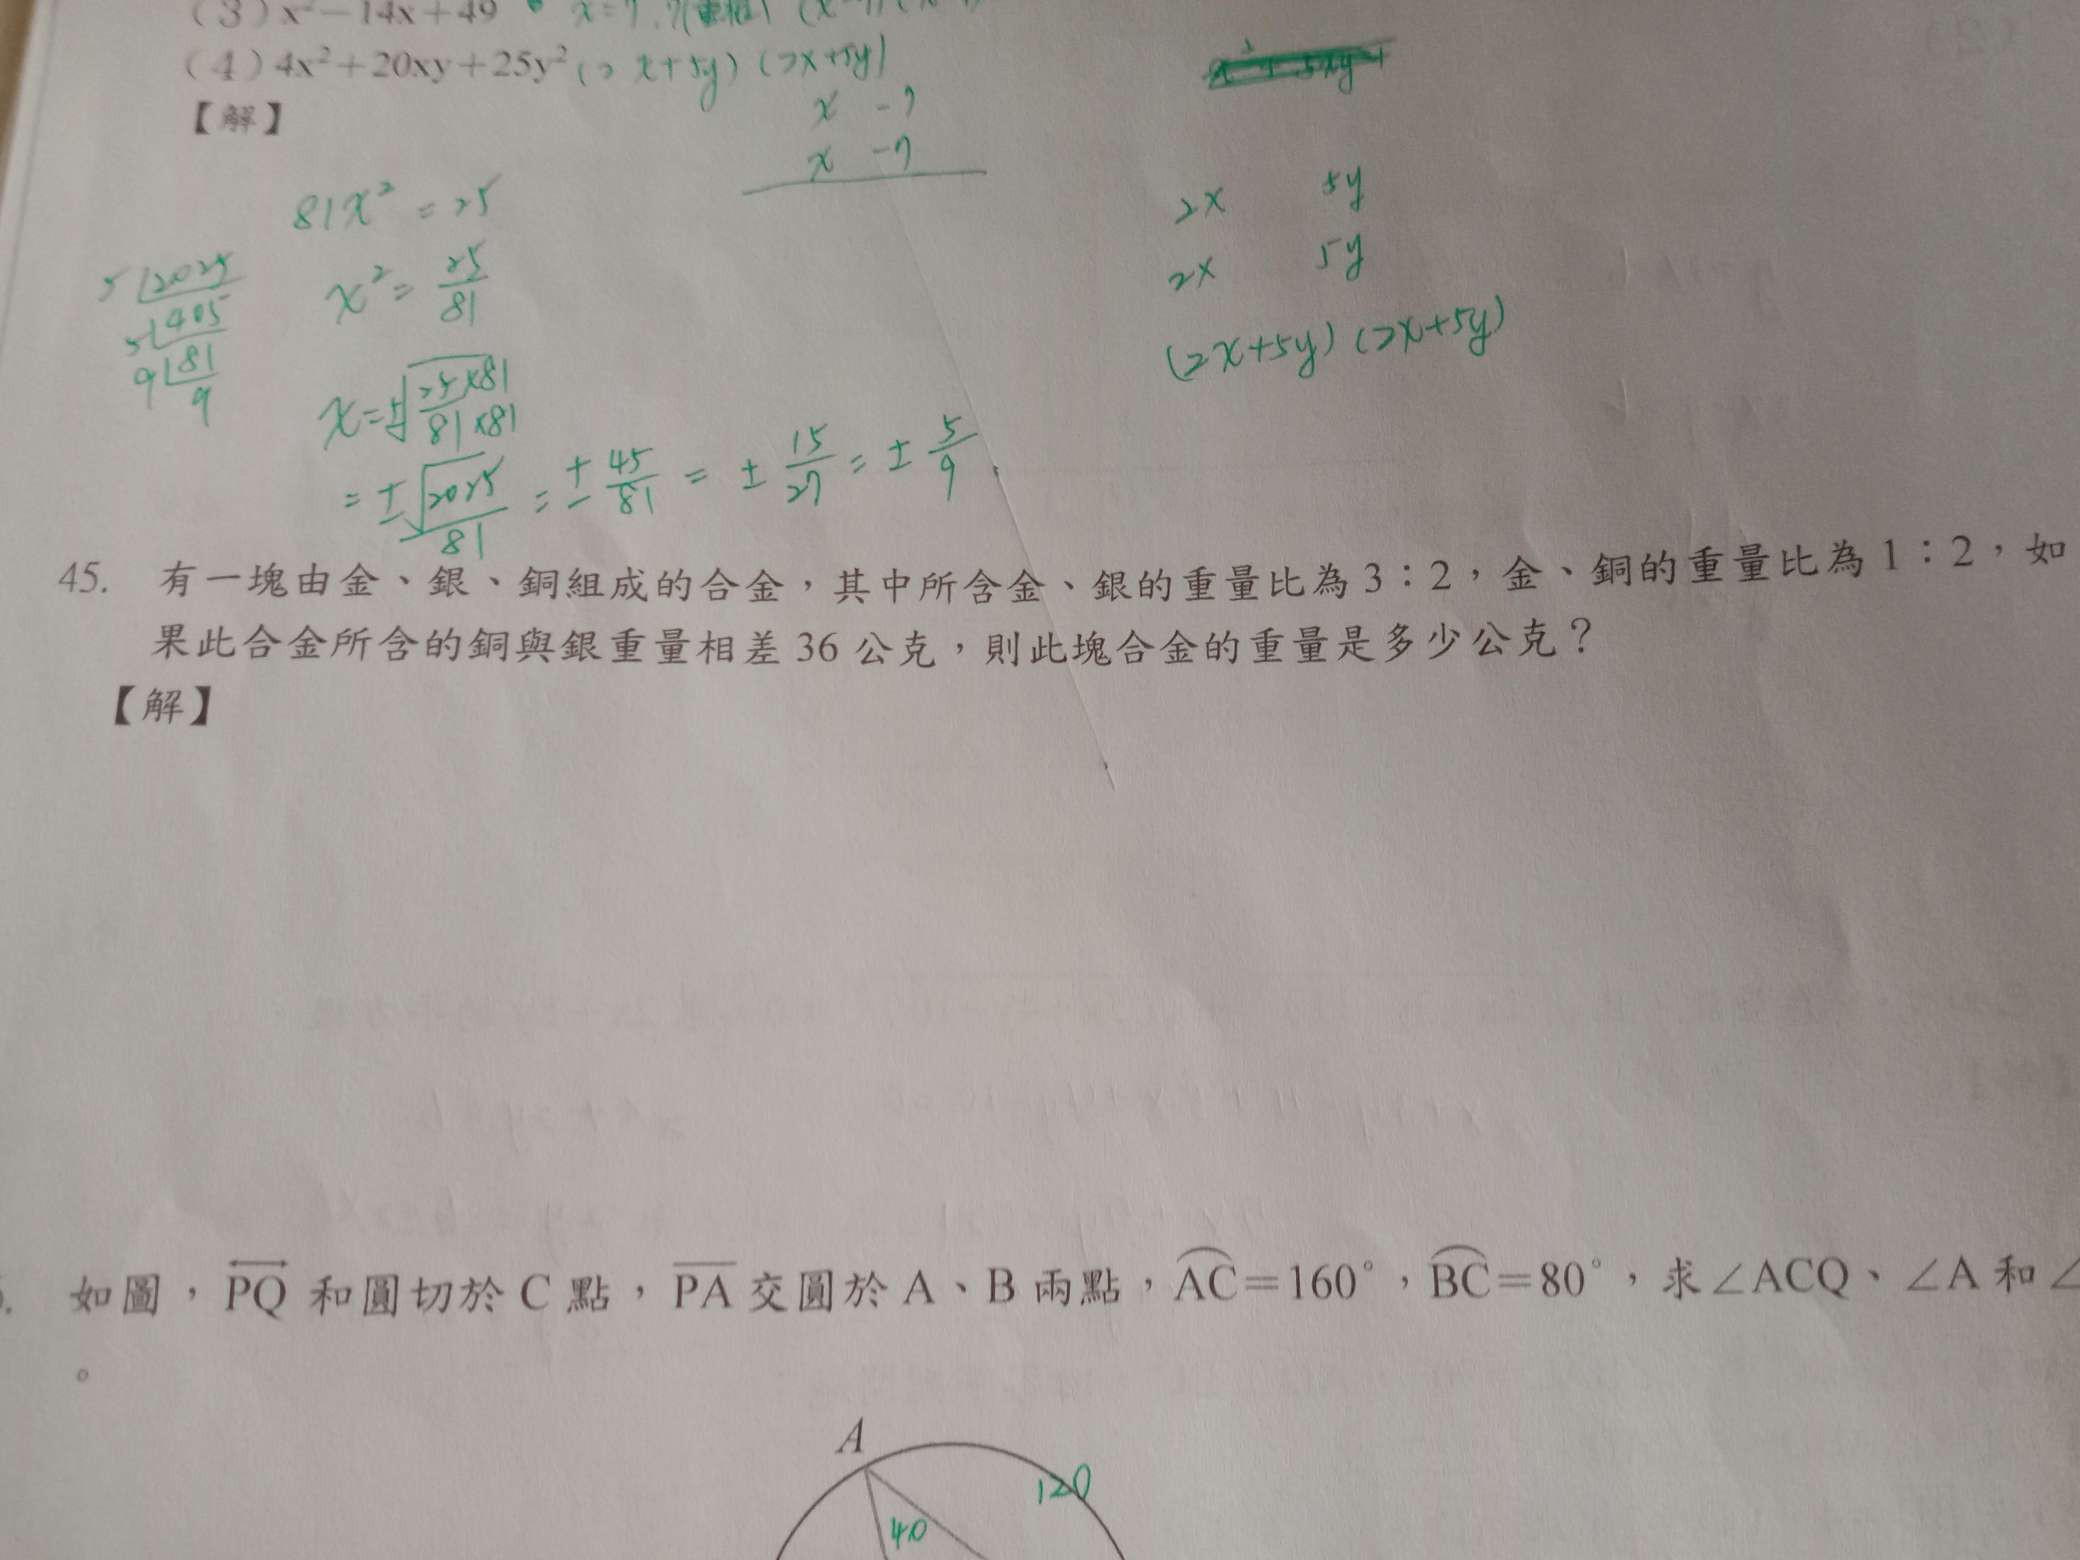 (3) x²－14x＋49 x=7,7(重根)
(4) 4x²＋20xy＋25y² (2x+5y)(2x+5y)
【解】
x -7
x -7
81x² = 25
x² = 25/81
x = ±√(25×81/81×81)
= ±√2025/81 = ±45/81 = ±15/27 = ±5/9
5 2025
5 405
9 81
9
2x 5y
2x 5y
(2x+5y)(2x+5y)
45. 有一塊由金、銀、銅組成的合金，其中所含金、銀的重量比為 3：2，金、銅的重量比為 1：2，如
果此合金所含的銅與銀重量相差 36 公克，則此塊合金的重量是多少公克？
【解】
如圖，PQ 和圓切於 C 點，PA 交圓於 A、B 兩點，AC＝160°，BC＝80°，求∠ACQ、∠A 和∠
。
A
120
40